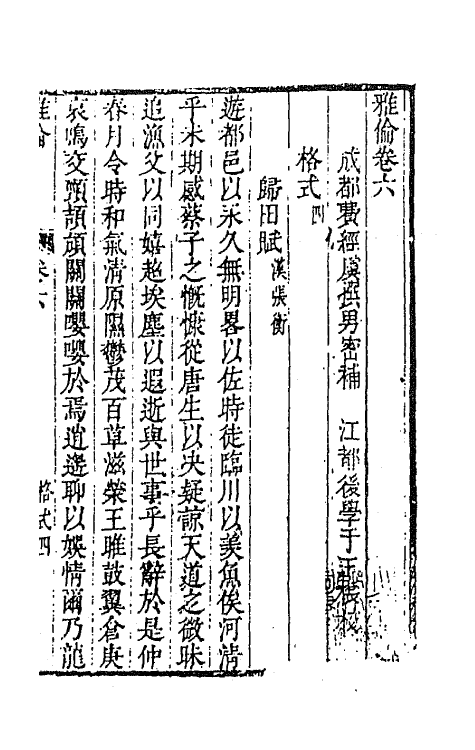 雅倫卷六
成都費經虞撰男密補　江都後學于王
格式四
歸田賦漢張衡
遊都邑以永久無明畧以佐時徒臨川以羨魚俟河清
乎未期感蔡子之慨慷從唐生以決疑諒天道之微昧
追漁父以同嬉超埃塵以遐逝與世事乎長辭於是仲
春月令時和氣清原隰鬱茂百草滋榮王雎鼓翼倉庚
哀鳴交頸頡頏關關嚶嚶於焉逍遙聊以娛情爾乃龍
卷六　格式四